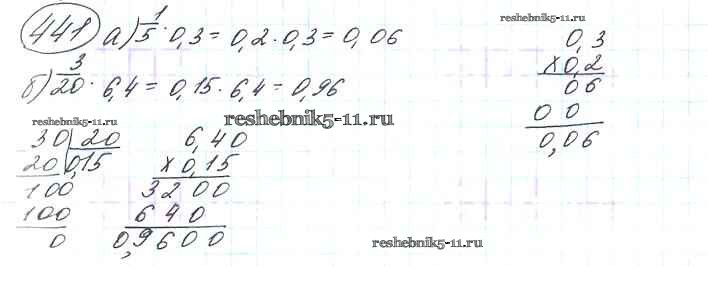 441 а) 1/5 · 0,3 = 0,2 · 0,3 = 0,06
б) 3/20 · 6,4 = 0,15 · 6,4 = 0,96
reshebnik5-11.ru
0,3
×0,2
06
00
0,06
reshebnik5-11.ru
reshebnik5-11.ru
30 20
20 0,15
100
100
0
6,40
×0,15
3200
640
0,9600
reshebnik5-11.ru